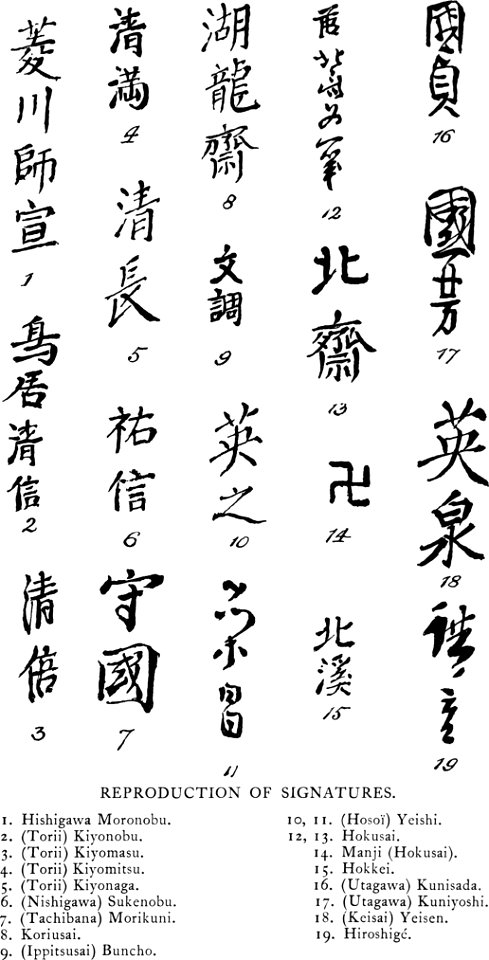 菱川師宣
1
鳥居清信
2
清倍
3
清満
4
清長
5
祐信
6
守國
7
湖龍齋
8
文調
9
英之
10
11
前北斎為一筆
12
北齋
13
卍
14
北溪
15
國貞
16
國芳
17
英泉
18
廣重
19
REPRODUCTION OF SIGNATURES.
1. Hishigawa Moronobu.
2. (Torii) Kiyonobu.
3. (Torii) Kiyomasu.
4. (Torii) Kiyomitsu.
5. (Torii) Kiyonaga.
6. (Nishigawa) Sukenobu.
7. (Tachibana) Morikuni.
8. Koriusai.
9. (Ippitsusai) Buncho.
10, 11. (Hosoï) Yeishi.
12, 13. Hokusai.
14. Manji (Hokusai).
15. Hokkei.
16. (Utagawa) Kunisada.
17. (Utagawa) Kuniyoshi.
18. (Keisai) Yeisen.
19. Hiroshigé.